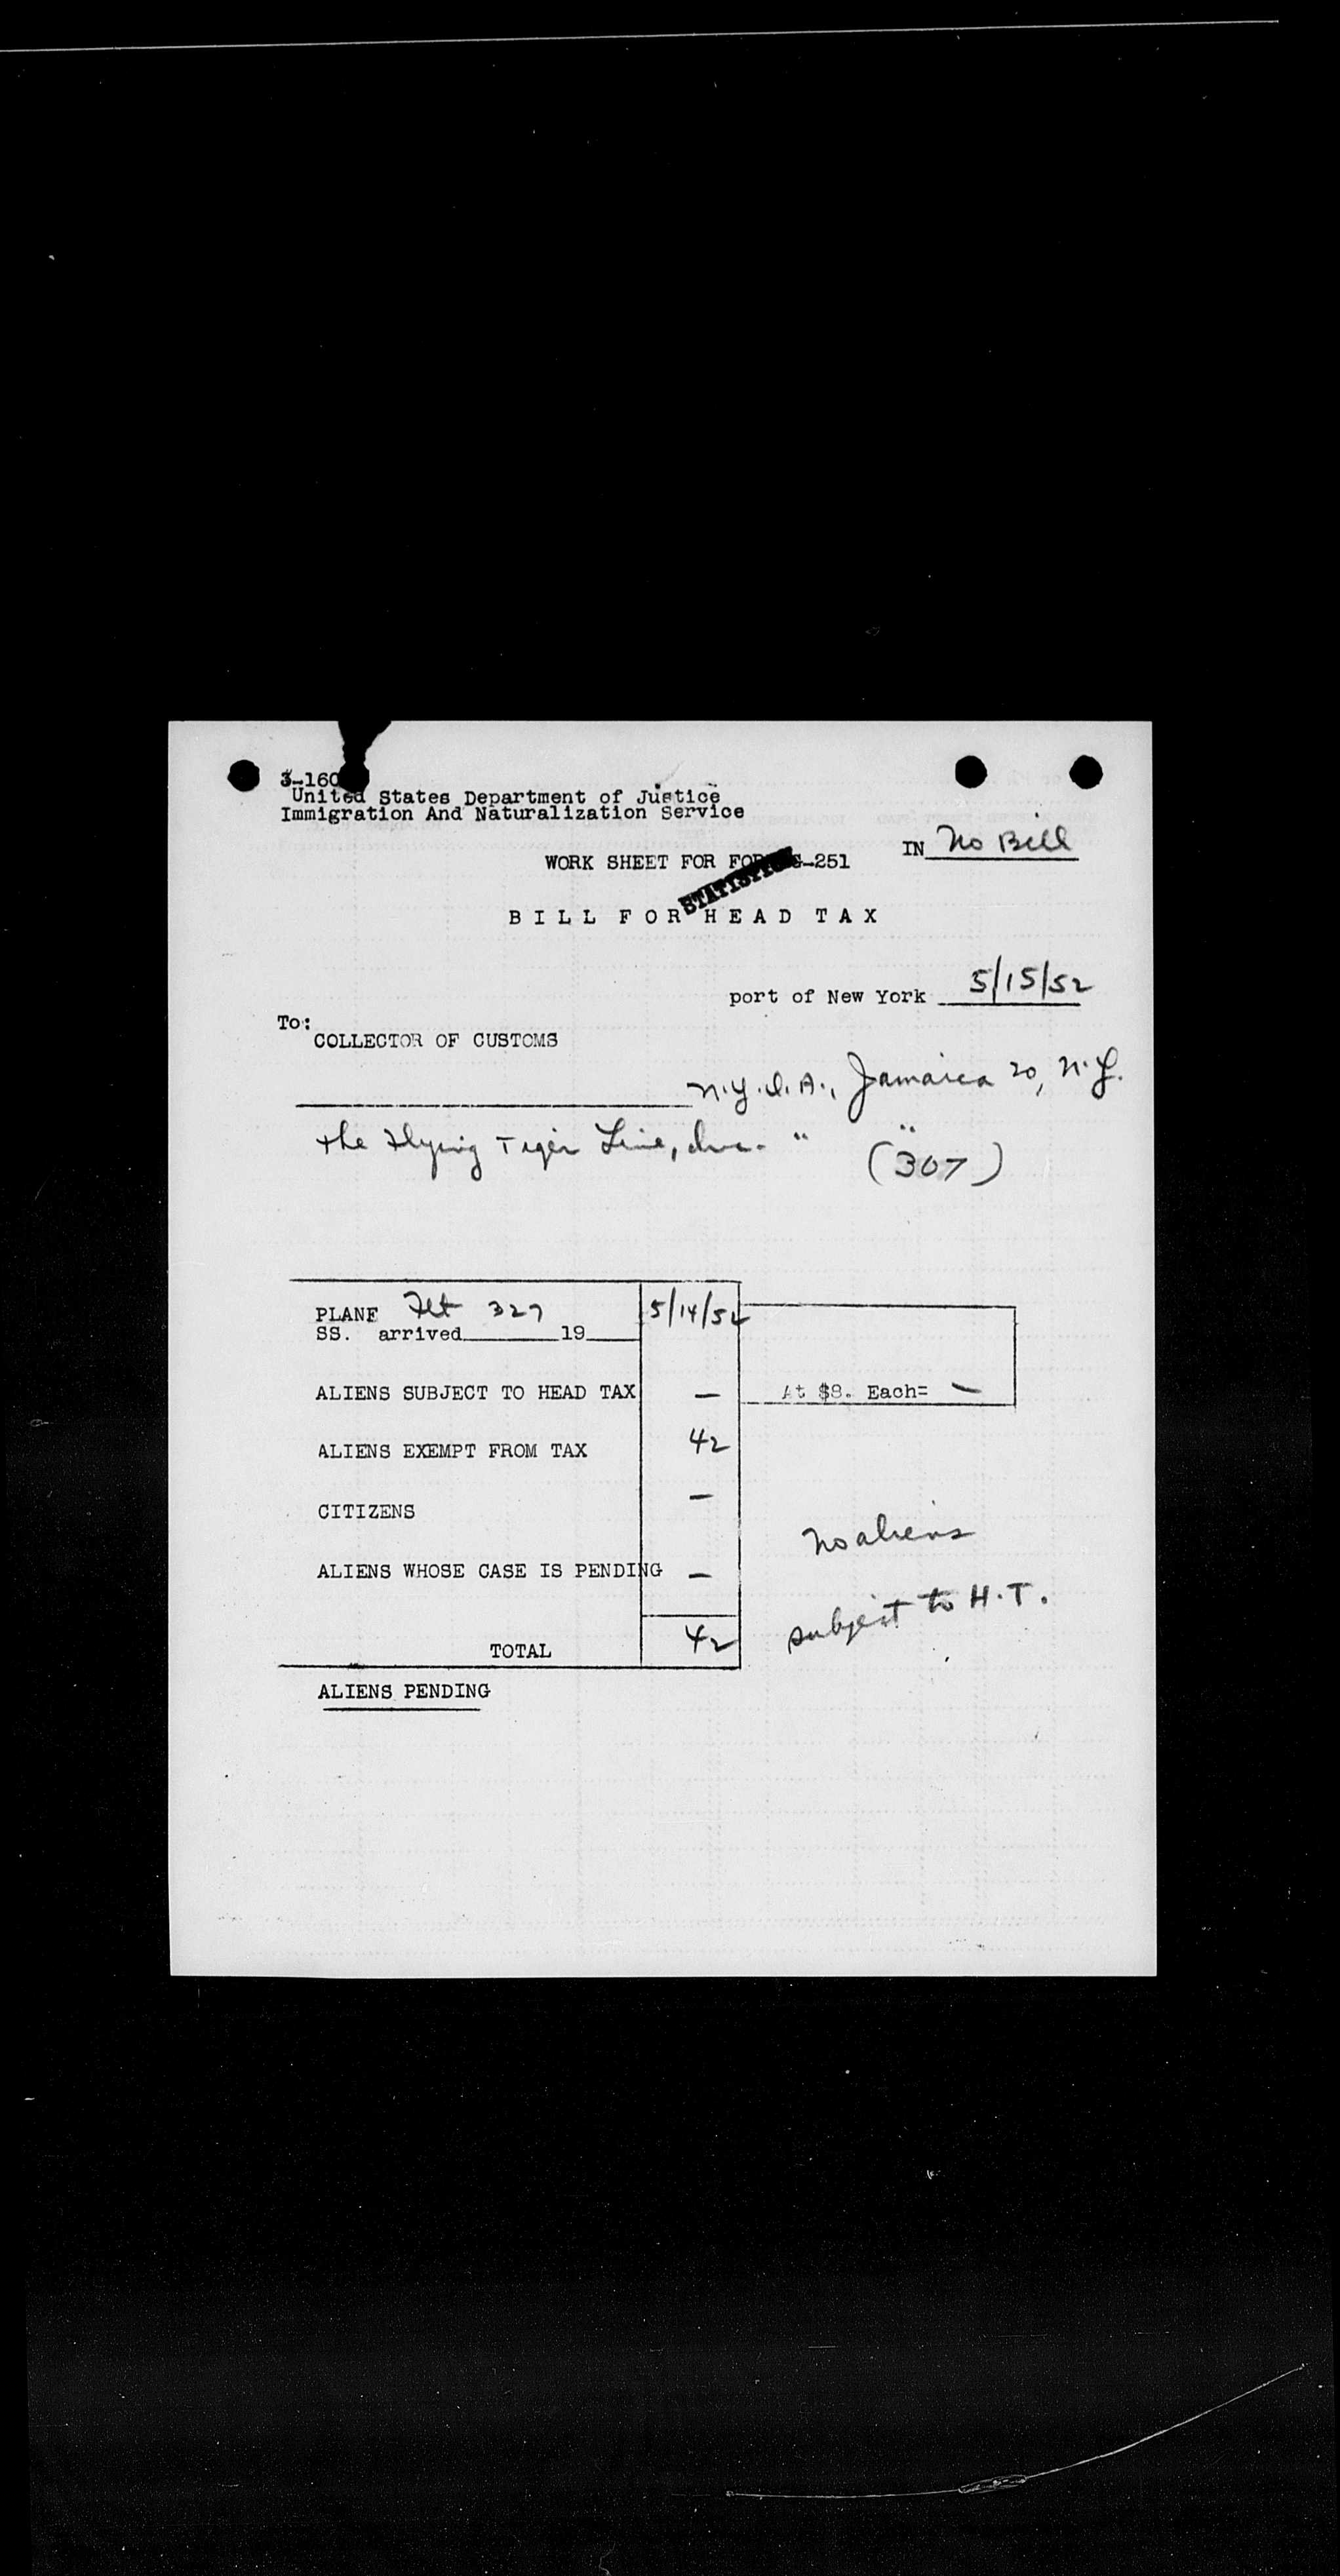 3-160
United States Department of Justice
Immigration And Naturalization Service
IN No Bill
WORK SHEET FOR FORM G-251
STATISTICS
BILL FOR HEAD TAX
port of New York 5/15/52
To:
COLLECTOR OF CUSTOMS
N.Y.I.A., Jamaica 20, N.Y.
The Flying Tiger Line, Inc. " "
(307)
PLANE Flt 327 5/14/52
SS. arrived 19
ALIENS SUBJECT TO HEAD TAX — At $8. Each= —
ALIENS EXEMPT FROM TAX 42
CITIZENS —
No aliens
ALIENS WHOSE CASE IS PENDING —
subject to H.T.
TOTAL 42
ALIENS PENDING